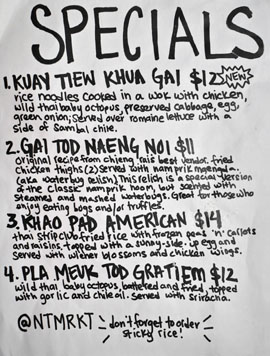 SPECIALS
1. KUAY TIEW KHUA GAI $12 NEW
rice noodles cooked in a wok with chicken,
wild thai baby octopus, preserved cabbage, egg,
green onion; served over romaine lettuce with a
side of sambal chile.
2. GAI TOD NAENG NOI $11
Original recipe from chieng rai's best vendor. fried
chicken thighs (2) served with namprik maengda.
(aka waterbug relish) This relish is a special version
of the classic namprik noom, but scented with
steamed and mashed waterbugs. Great for those who
enjoy eating bugs and/or truffles.
3. KHAO PAD AMERICAN $14
thai street wo-fried rice with frozen peas 'n' carrots
and raisins, topped with a sunny-side-up egg and
served with wiener blossoms and chicken wings.
4. PLA MEUK TOD GRATIEM $12
wild thai baby octopus, battered and fried, topped
with garlic and chile oil. Served with sriracha.
@NTMRKT
don't forget to order
sticky rice!